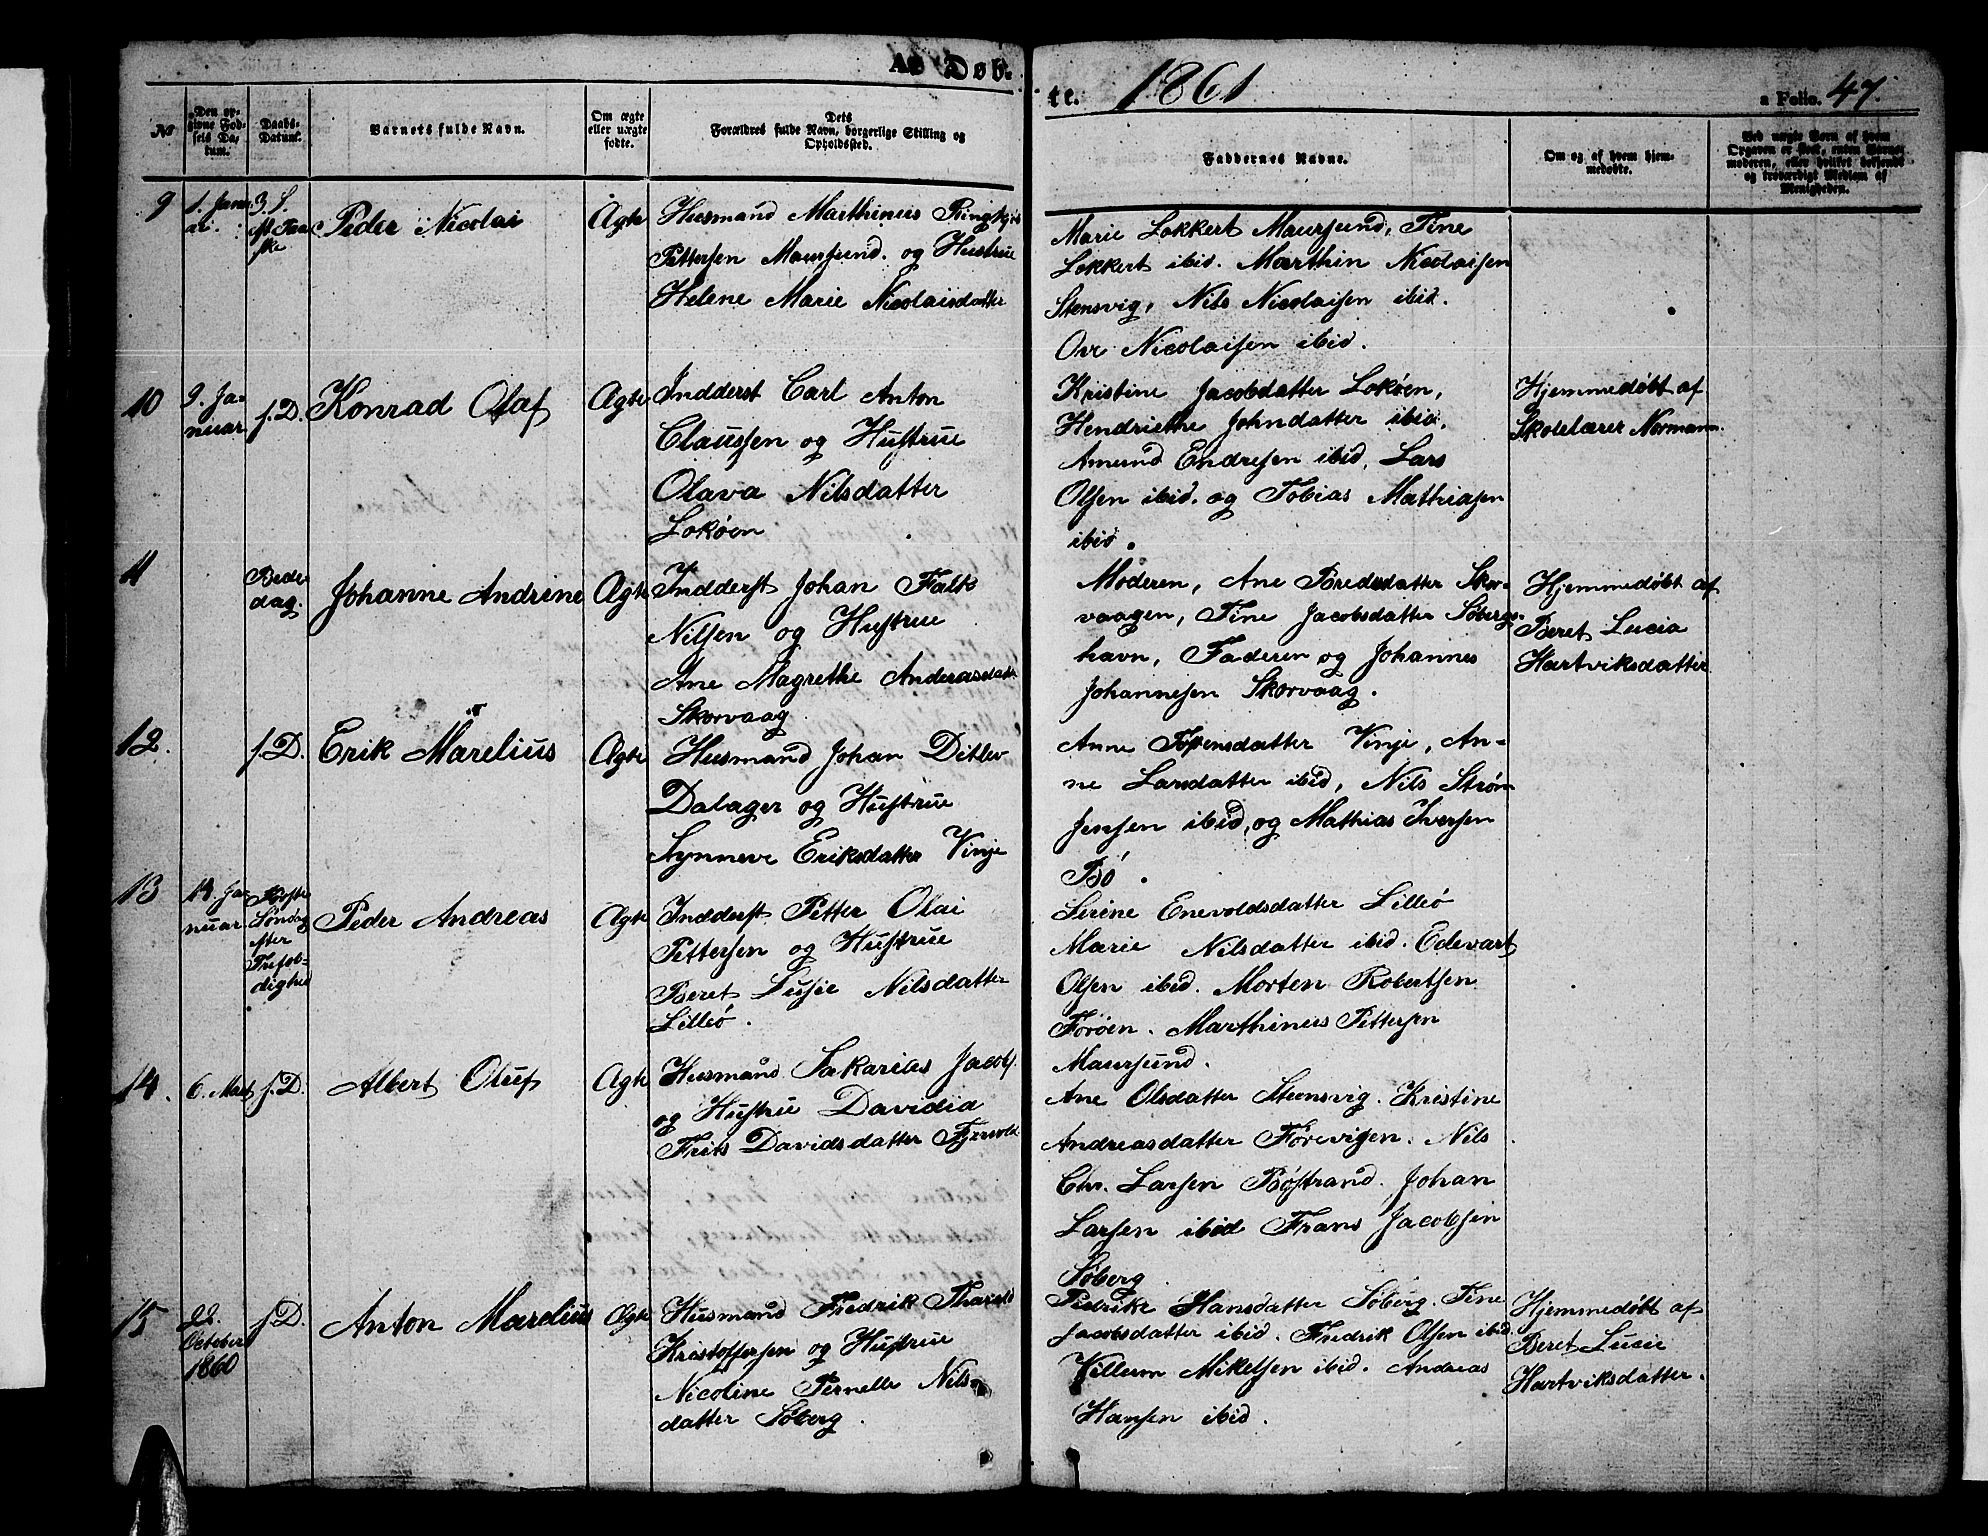 Døb-
te. 1861
a Folio. 47.
№
Den opgivne Fødsels Datum.
Daabs-Datum.
Barnets fulde Navn.
Om ægte eller uægte fødte.
Dets Forældres fulde Navn, borgerlige Stilling og Opholdssted.
Faddernes Navne.
Om og af hvem hjemmedøbte.
9
1. Janu-
ar.
3. S.
Peder Nicolai
Ægte
Husmand Marthinus
Pettersen Maursund. og Hustrue
Helene Marie Nicolaisdatter
Marie Lokkert Maursund, Tine
Lokkert ibid. Marthin Nicolaisen
Stensvig, Nils Nicolaisen ibid.
Ove Nicolaisen ibid.
10
9. Ja-
nuar
s. D.
Konrad Olaf
Ægte
Indderst Carl Anton
Claussen og Hustrue
Olava Nilsdatter
Lokøen
Kristine Jacobdatter Lokøen,
Hendriethe Johndatter ibid.
Amund Endresen ibid, Lars
Olsen ibid. og Tobias Mathiasen
ibid.
Hjemmedøbt af
Skolelærer Normann.
11
Bede
dag.
Johanne Andrine
Ægte
Indderst Johan Falk
Nilsen og Hustrue
Ane Magrethe Anderasdatt
Skorvaag
Moderen, Ane Bredesdatter Skor-
vaagen, Tine Jacobsdatter Søbergs-
havn, Faderen og Johannes
Johannesen Skorvaag.
Hjemmedøbt af
Beret Lucia
Hartviksdatter
12.
s. D.
Erik Marelius
Ægte
Husmand Johan Ditlev
Dalager og Hustrue
Synneve Eriksdatter Vinje
Anne Vinje, An-
ne Larsdatter ibid, Nils Strøm
Jensen ibid, og Mathias Iversen
Bö.
13
14 Ja-
nuar
Første
Søndag
efter
Trefol-
dighed
Peder Andreas
Ægte
Indderst Petter Olai
Pettersen og Hustrue
Beret Lusie Nilsdatter
Lilleö.
Serine Enevoldsdatter Lilleö
Marie Nilsdatter ibid. Edevart
Olsen ibid. Morten Robertsen
Forøen. Marthinus Pettersen
Maursund.
14.
6. Mart
s. D.
Albert Oluf
Ægte
Husmand Sakarias Jacobs.
og Hustrue Davidia
Frits Davidsdatter
Ane Olsdatter Steensvig. Kristine
Andreasdatter Førevigen. Nils
Chr. Larsen Bøstrand. Johan
Larsen ibid Frans Jacobsen
Søberg
15
22.
October
1860
s. D.
Anton Marelius
Ægte
Husmand Fredrik Tharald
Kristoffersen og Hustrue
Nicoline Pernelle Nils-
datter Søberg.
Pedrike Hansdatter Søberg. Tine
Jacobsdatter ibid. Fredrik Olsen ibid.
Villum Mikelsen ibid. Andreas
Hansen ibid.
Hjemmedøbt af
Beret Lusie
Hartviksdatter.